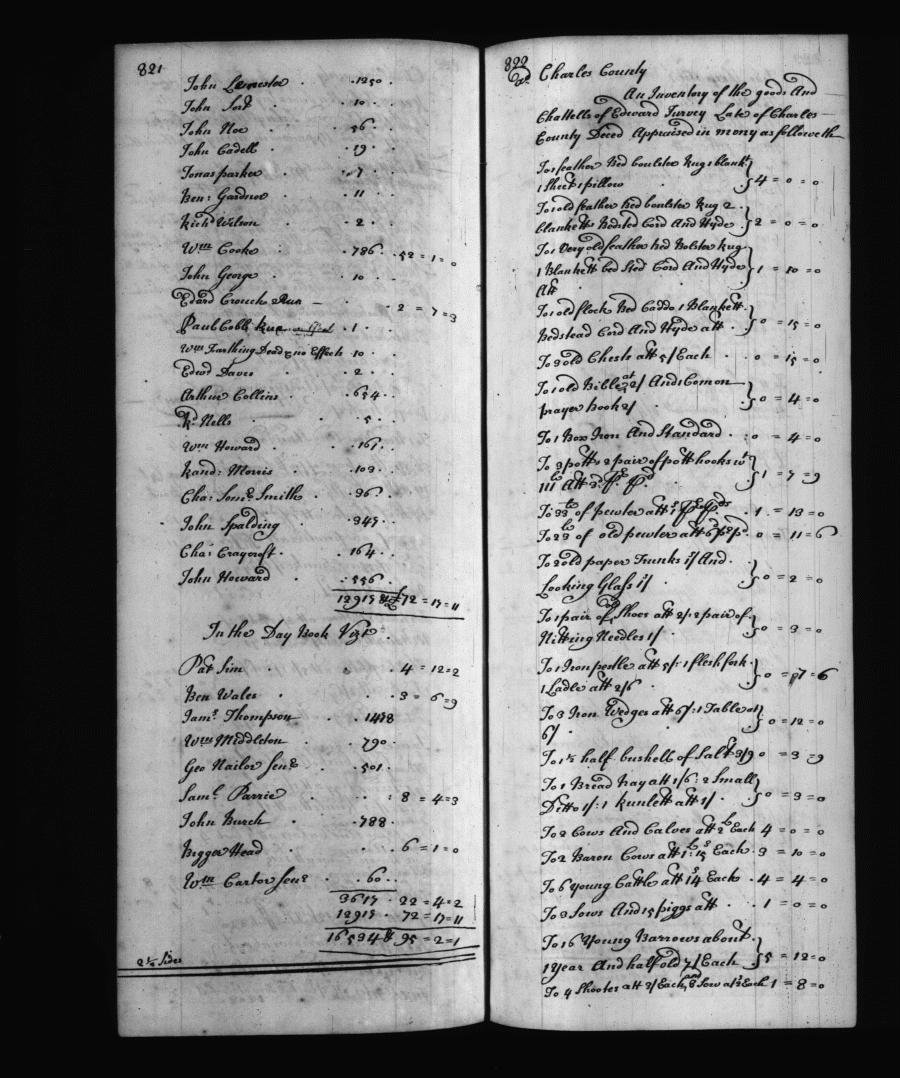 821
John Lemester . . 1250 . .
John Sort . 10 . .
John Noe . . 56 . .
John Cadell . . 19 . .
Jonas parker . . 7 . .
Ben: Gardner . . 11 . .
Richd Wilson . . 2 . .
Wm Cooke . . 786 . . 52 = 1 = 0
John George . . 10 . .
Edard Crouch Run — . . 2 = 7 = 3
Paul Cobb Run . 1 .
Wm Farthing Dead & no Effects 10 . .
Edwd Davis . . 2 . .
Arthur Collins . . 654 . .
Rd Nells . . 5 . .
Wm Howard . . 161 . .
Rand: Morris . . 103 . .
Cha: Somt Smith . . 36 . .
John Spalding . . 345 . .
Cha: Craycroft . . 164 . .
John Howard . . 556 . .
12915 72 = 17 = 11
In the Day Book Vizt
Pat Sim . . 4 = 12 = 2
Ben Wales . . 3 = 6 = 9
Jams Thompson . . 1458
Wm Middleton . . 790 .
Geo Nailor Senr . . 501 .
Saml Parrie . . : 8 = 4 = 3
John Burch . . 788 .
Bigger Head . . 6 = 1 = 0
Wm Carter Senr . . 60 . .
3617 . 22 = 4 = 2
12915 . 72 = 17 = 11
16534 95 = 2 = 1
2 1/4 Sides
822
Charles County
An Inventory of the goods And
Chattells of Edward Turvey Late of Charles
County Deced Appraised in mony as followeth
To 1 feather Bed boulster Rug 1 blankt
1 Sheet 1 pillow . . 4 = 0 = 0
To 1 old feather bed boulster Rug 2
blanketts Bedsted Cord And Hyde . 2 = 0 = 0
To 1 Very old feather bed Bolster Rug
1 Blankett bed Sted Cord And Hyde 1 = 10 = 0
Att
To 1 old flock Bed Caddo 1 Blankett
Bedstead Cord And Hyde att . 0 = 15 = 0
To 3 old Chests att 5/ Each . . 0 = 15 = 0
To 1 old Bible at 2/ And 1 Comon
prayer book 2/ . 0 = 4 = 0
To 1 Box Iron And Standard . : 0 = 4 = 0
To 3 potts 2 pair of pott hooks wt
111 lb Att 3d p lb 1 = 7 = 9
To 33 lb of pewter att p pd . 1 . = 13 = 0
To 23 lb of old pewter att 6d p . 0 = 11 = 6
To 2 old paper Trunks 1/ And
Looking Glass 1/ 0 = 2 = 0
To 1 pair of Shoes att 2/: 2 pair of
Nitting Needles 1/ . 0 = 3 = 0
To 1 Iron pestle att 5/: 1 flesh fork
1 Ladle att 2/6 . 0 = 7 = 6
To 3 Iron Wedges att 6/: 1 Table at
6/ . 0 = 12 = 0
To 1 1/2 half bushells of Salt 3/9 0 = 3 = 9
To 1 Bread Tray att 1/6 : 2 Small
Ditto 1/: 1 Runlett att 1/ . 0 = 3 = 0
To 2 Cows And Calves att 2 L Each 4 = 0 = 0
To 2 Baron Cows att 1 L: 15 s Each . 3 = 10 = 0
To 6 Young Cattle att 14 s Each . 4 = 4 = 0
To 3 Sows And 15 piggs att . . 1 = 0 = 0
To 16 Young Barrows about
1 Year And half old 7/ Each 5 = 12 = 0
To 4 Shootes att 2/ Each, and 8 Sow at Each 1 = 8 = 0